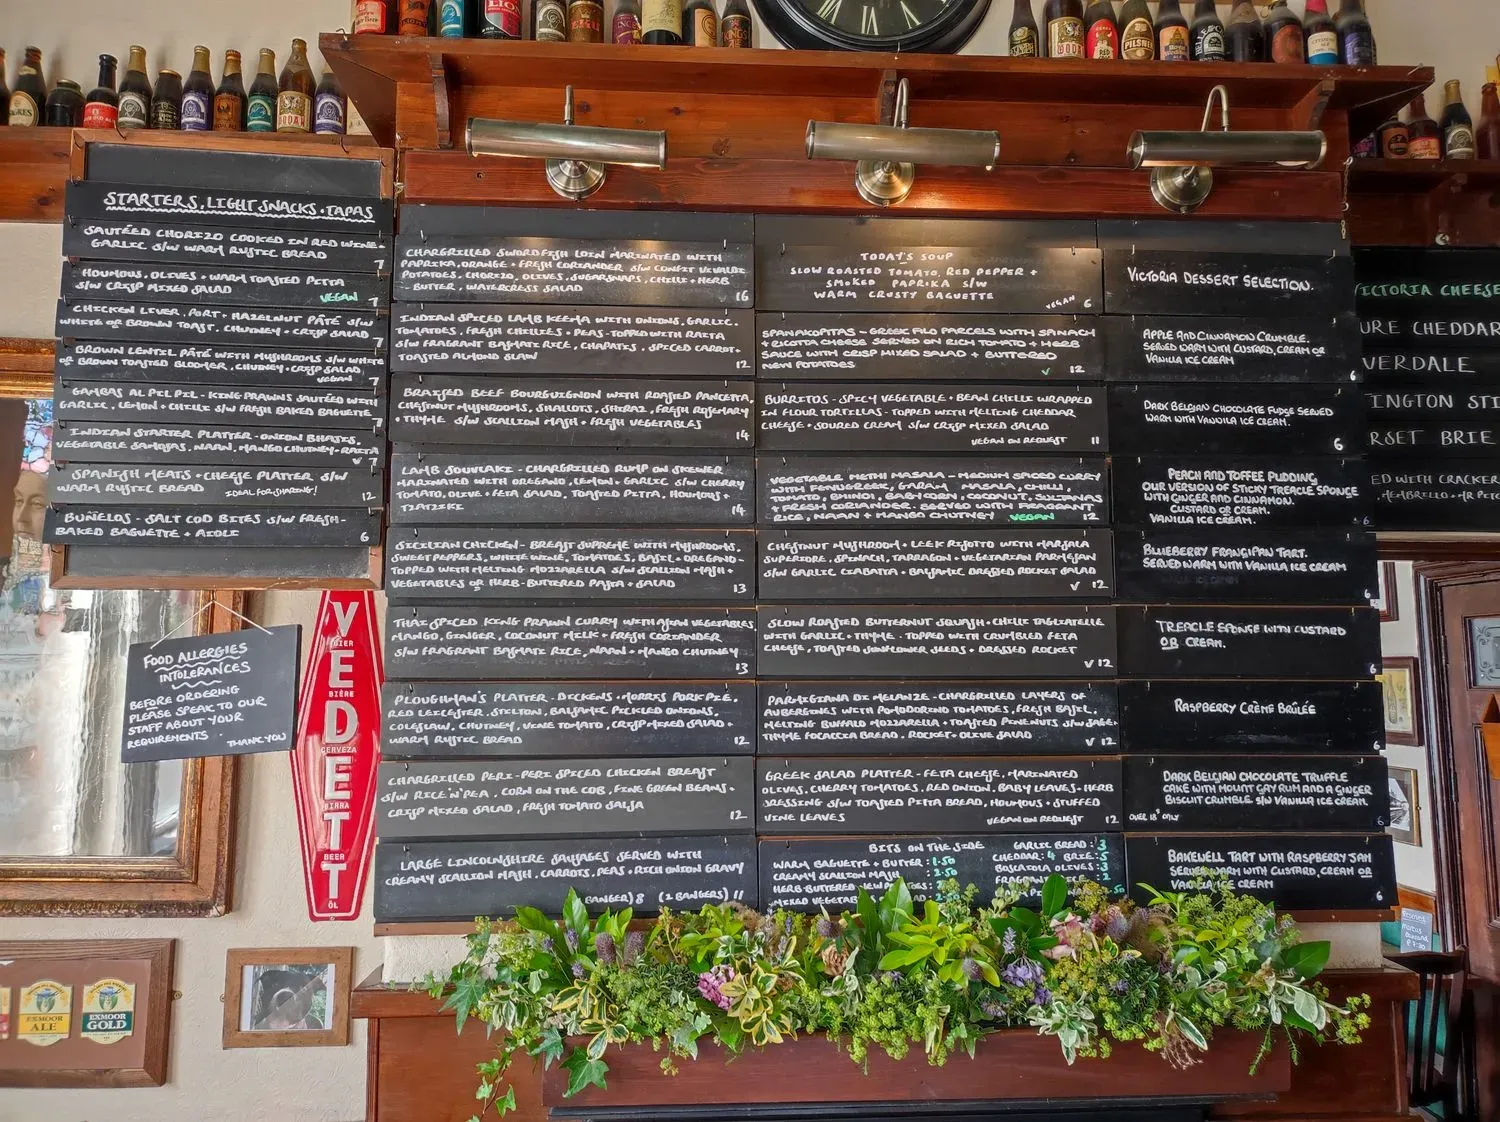 STARTERS, LIGHT SNACKS + TAPAS
SAUTÉED CHORIZO COOKED IN RED WINE +
GARLIC S/W WARM RUSTIC BREAD
7
HOUMOUS, OLIVES + WARM TOASTED PITTA
S/W CRISP MIXED SALAD
VEGAN 7
CHICKEN LIVER, PORT + HAZELNUT PÂTÉ S/W
WHITE OR BROWN TOAST, CHUTNEY + CRISP SALAD
7
BROWN LENTIL PÂTÉ WITH MUSHROOMS S/W WHITE
OR BROWN TOASTED BLOOMER, CHUTNEY + CRISP SALAD
VEGAN 7
GAMBAS AL PIL PIL - KING PRAWNS SAUTÉED WITH
GARLIC, LEMON + CHILLI S/W FRESH BAKED BAGUETTE
7
INDIAN STARTER PLATTER - ONION BHAJIS,
VEGETABLE SAMOSAS, NAAN, MANGO CHUTNEY + RAITA
V 7
SPANISH MEATS + CHEESE PLATTER S/W
WARM RUSTIC BREAD IDEAL FOR SHARING! 12
BUÑELOS - SALT COD BITES S/W FRESH-
BAKED BAGUETTE + AIOLI 6
FOOD ALLERGIES
INTOLERANCES
BEFORE ORDERING
PLEASE SPEAK TO OUR
STAFF ABOUT YOUR
REQUIREMENTS.
THANK YOU
VEDETT
BIER
BIÈRE
CERVEZA
BIRRA
BEER
ÖL
EXMOOR
ALE
EXMOOR
GOLD
CHARGRILLED SWORDFISH LOIN MARINATED WITH
PAPRIKA, ORANGE + FRESH CORIANDER S/W CONFIT VIVALDI
POTATOES, CHORIZO, OLIVES, SUGARSNAPS, CHILLI + HERB
BUTTER, WATERCRESS SALAD
16
INDIAN SPICED LAMB KEEMA WITH ONIONS, GARLIC,
TOMATOES, FRESH CHILLIES + PEAS - TOPPED WITH RAITA
S/W FRAGRANT BASMATI RICE, CHAPATIS, SPICED CARROT +
TOASTED ALMOND SLAW
12
BRAISED BEEF BOURGUIGNON WITH ROASTED PANCETTA,
CHESTNUT MUSHROOMS, SHALLOTS, SHIRAZ, FRESH ROSEMARY
+ THYME S/W SCALLION MASH + FRESH VEGETABLES
14
LAMB SOUVLAKI - CHARGRILLED RUMP ON SKEWER
MARINATED WITH OREGANO, LEMON + GARLIC S/W CHERRY
TOMATO, OLIVE + FETA SALAD, TOASTED PITTA, HOUMOUS +
TZATZIKI
14
SICILIAN CHICKEN - BREAST SUPREME WITH MUSHROOMS,
SWEET PEPPERS, WHITE WINE, TOMATOES, BASIL + OREGANO -
TOPPED WITH MELTING MOZZARELLA S/W SCALLION MASH +
VEGETABLES OR HERB-BUTTERED PASTA + SALAD
13
THAI SPICED KING PRAWN CURRY WITH ASIAN VEGETABLES,
MANGO, GINGER, COCONUT MILK + FRESH CORIANDER
S/W FRAGRANT BASMATI RICE, NAAN + MANGO CHUTNEY
13
PLOUGHMAN'S PLATTER - DICKENS + MORRIS PORK PIE,
RED LEICESTER, STILTON, BALSAMIC PICKLED ONIONS,
COLESLAW, CHUTNEY, VINE TOMATO, CRISP MIXED SALAD +
WARM RUSTIC BREAD
12
CHARGRILLED PERI-PERI SPICED CHICKEN BREAST
S/W RICE 'N' PEA, CORN ON THE COB, FINE GREEN BEANS +
CRISP MIXED SALAD, FRESH TOMATO SALSA
12
LARGE LINCOLNSHIRE SAUSAGES SERVED WITH
CREAMY SCALLION MASH, CARROTS, PEAS + RICH ONION GRAVY
BANGER) 8 (2 BANGERS) 11
TODAY'S SOUP
SLOW ROASTED TOMATO, RED PEPPER +
SMOKED PAPRIKA S/W
WARM CRUSTY BAGUETTE
VEGAN 6
SPANAKOPITAS - GREEK FILO PARCELS WITH SPINACH
+ RICOTTA CHEESE SERVED ON RICH TOMATO + HERB
SAUCE WITH CRISP MIXED SALAD + BUTTERED
NEW POTATOES
V 12
BURRITOS - SPICY VEGETABLE + BEAN CHILLI WRAPPED
IN FLOUR TORTILLAS - TOPPED WITH MELTING CHEDDAR
CHEESE + SOURED CREAM S/W CRISP MIXED SALAD
VEGAN ON REQUEST 11
VEGETABLE METHI MASALA - MEDIUM SPICED CURRY
WITH FENUGREEK, GARAM MASALA, CHILLI,
TOMATO, BHINDI, BABYCORN, COCONUT, SULTANAS
+ FRESH CORIANDER. SERVED WITH FRAGRANT
RICE, NAAN + MANGO CHUTNEY VEGAN 12
CHESTNUT MUSHROOM + LEEK RISOTTO WITH MARSALA
SUPERIORE, SPINACH, TARRAGON + VEGETARIAN PARMESAN
S/W GARLIC CIABATTA + BALSAMIC DRESSED ROCKET SALAD
V 12
SLOW ROASTED BUTTERNUT SQUASH + CHILLI TAGLIATELLE
WITH GARLIC + THYME - TOPPED WITH CRUMBLED FETA
CHEESE, TOASTED SUNFLOWER SEEDS + DRESSED ROCKET
V 12
PARMIGIANA DI MELANZE - CHARGRILLED LAYERS OF
AUBERGINES WITH POMODORINO TOMATOES, FRESH BASIL,
MELTING BUFFALO MOZZARELLA + TOASTED PINENUTS S/W SAGE +
THYME FOCACCIA BREAD, ROCKET + OLIVE SALAD
V 12
GREEK SALAD PLATTER - FETA CHEESE, MARINATED
OLIVES, CHERRY TOMATOES, RED ONION, BABY LEAVES + HERB
DRESSING S/W TOASTED PITTA BREAD, HOUMOUS + STUFFED
VINE LEAVES VEGAN ON REQUEST 12
BITS ON THE SIDE
WARM BAGUETTE + BUTTER : 1.50
CREAMY SCALLION MASH : 2
HERB BUTTERED NEW POTATOES :
MIXED VEGETABLES
2.50
GARLIC BREAD : 3
CHEDDAR : 4 BRIE : 5
BOSCAIOLA OLIVES : 3
FRAGRANT RICE : 2
VICTORIA DESSERT SELECTION.
APPLE AND CINNAMON CRUMBLE.
SERVED WARM WITH CUSTARD, CREAM OR
VANILLA ICE CREAM.
6
DARK BELGIAN CHOCOLATE FUDGE SERVED
WARM WITH VANOILA ICE CREAM.
6
PEACH AND TOFFEE PUDDING
OUR VERSION OF STICKY TREACLE SPONGE
WITH GINGER AND CINNAMON.
CUSTARD OR CREAM.
VANILLA ICE CREAM.
6
BLUEBERRY FRANGIPAN TART.
SERVED WARM WITH VANILLA ICE CREAM
6
TREACLE SPONGE WITH CUSTARD
OR CREAM.
6
RASPBERRY CRÈME BRÛLÉE
6
DARK BELGIAN CHOCOLATE TRUFFLE
CAKE WITH MOUNT GAY RUM AND A GINGER
BISCUIT CRUMBLE. S/W VANILLA ICE CREAM.
OVER 18'S ONLY 6
BAKEWELL TART WITH RASPBERRY JAM
SERVED WARM WITH CUSTARD, CREAM OR
VANILLA ICE CREAM
6
ICTORIA CHEESE
URE CHEDDAR
VERDALE
INGTON STI
RSET BRIE
ED WITH CRACKER
MEMBRILLO + MR PITC